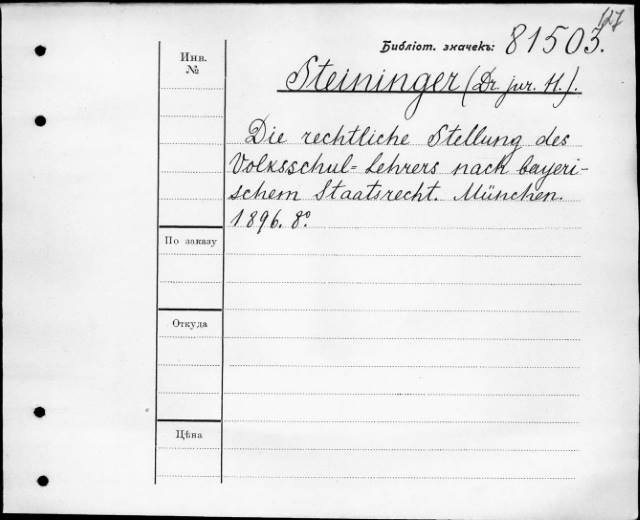 127
Библіот. значекъ: 81503.
Инв.
№
Steininger (Dr jur. H.).
Die rechtliche Stellung des
Volksschul=Lehrers nach bayeri-
schem Staatsrecht. München.
1896. 8º.
По заказу
Откуда
Цѣна